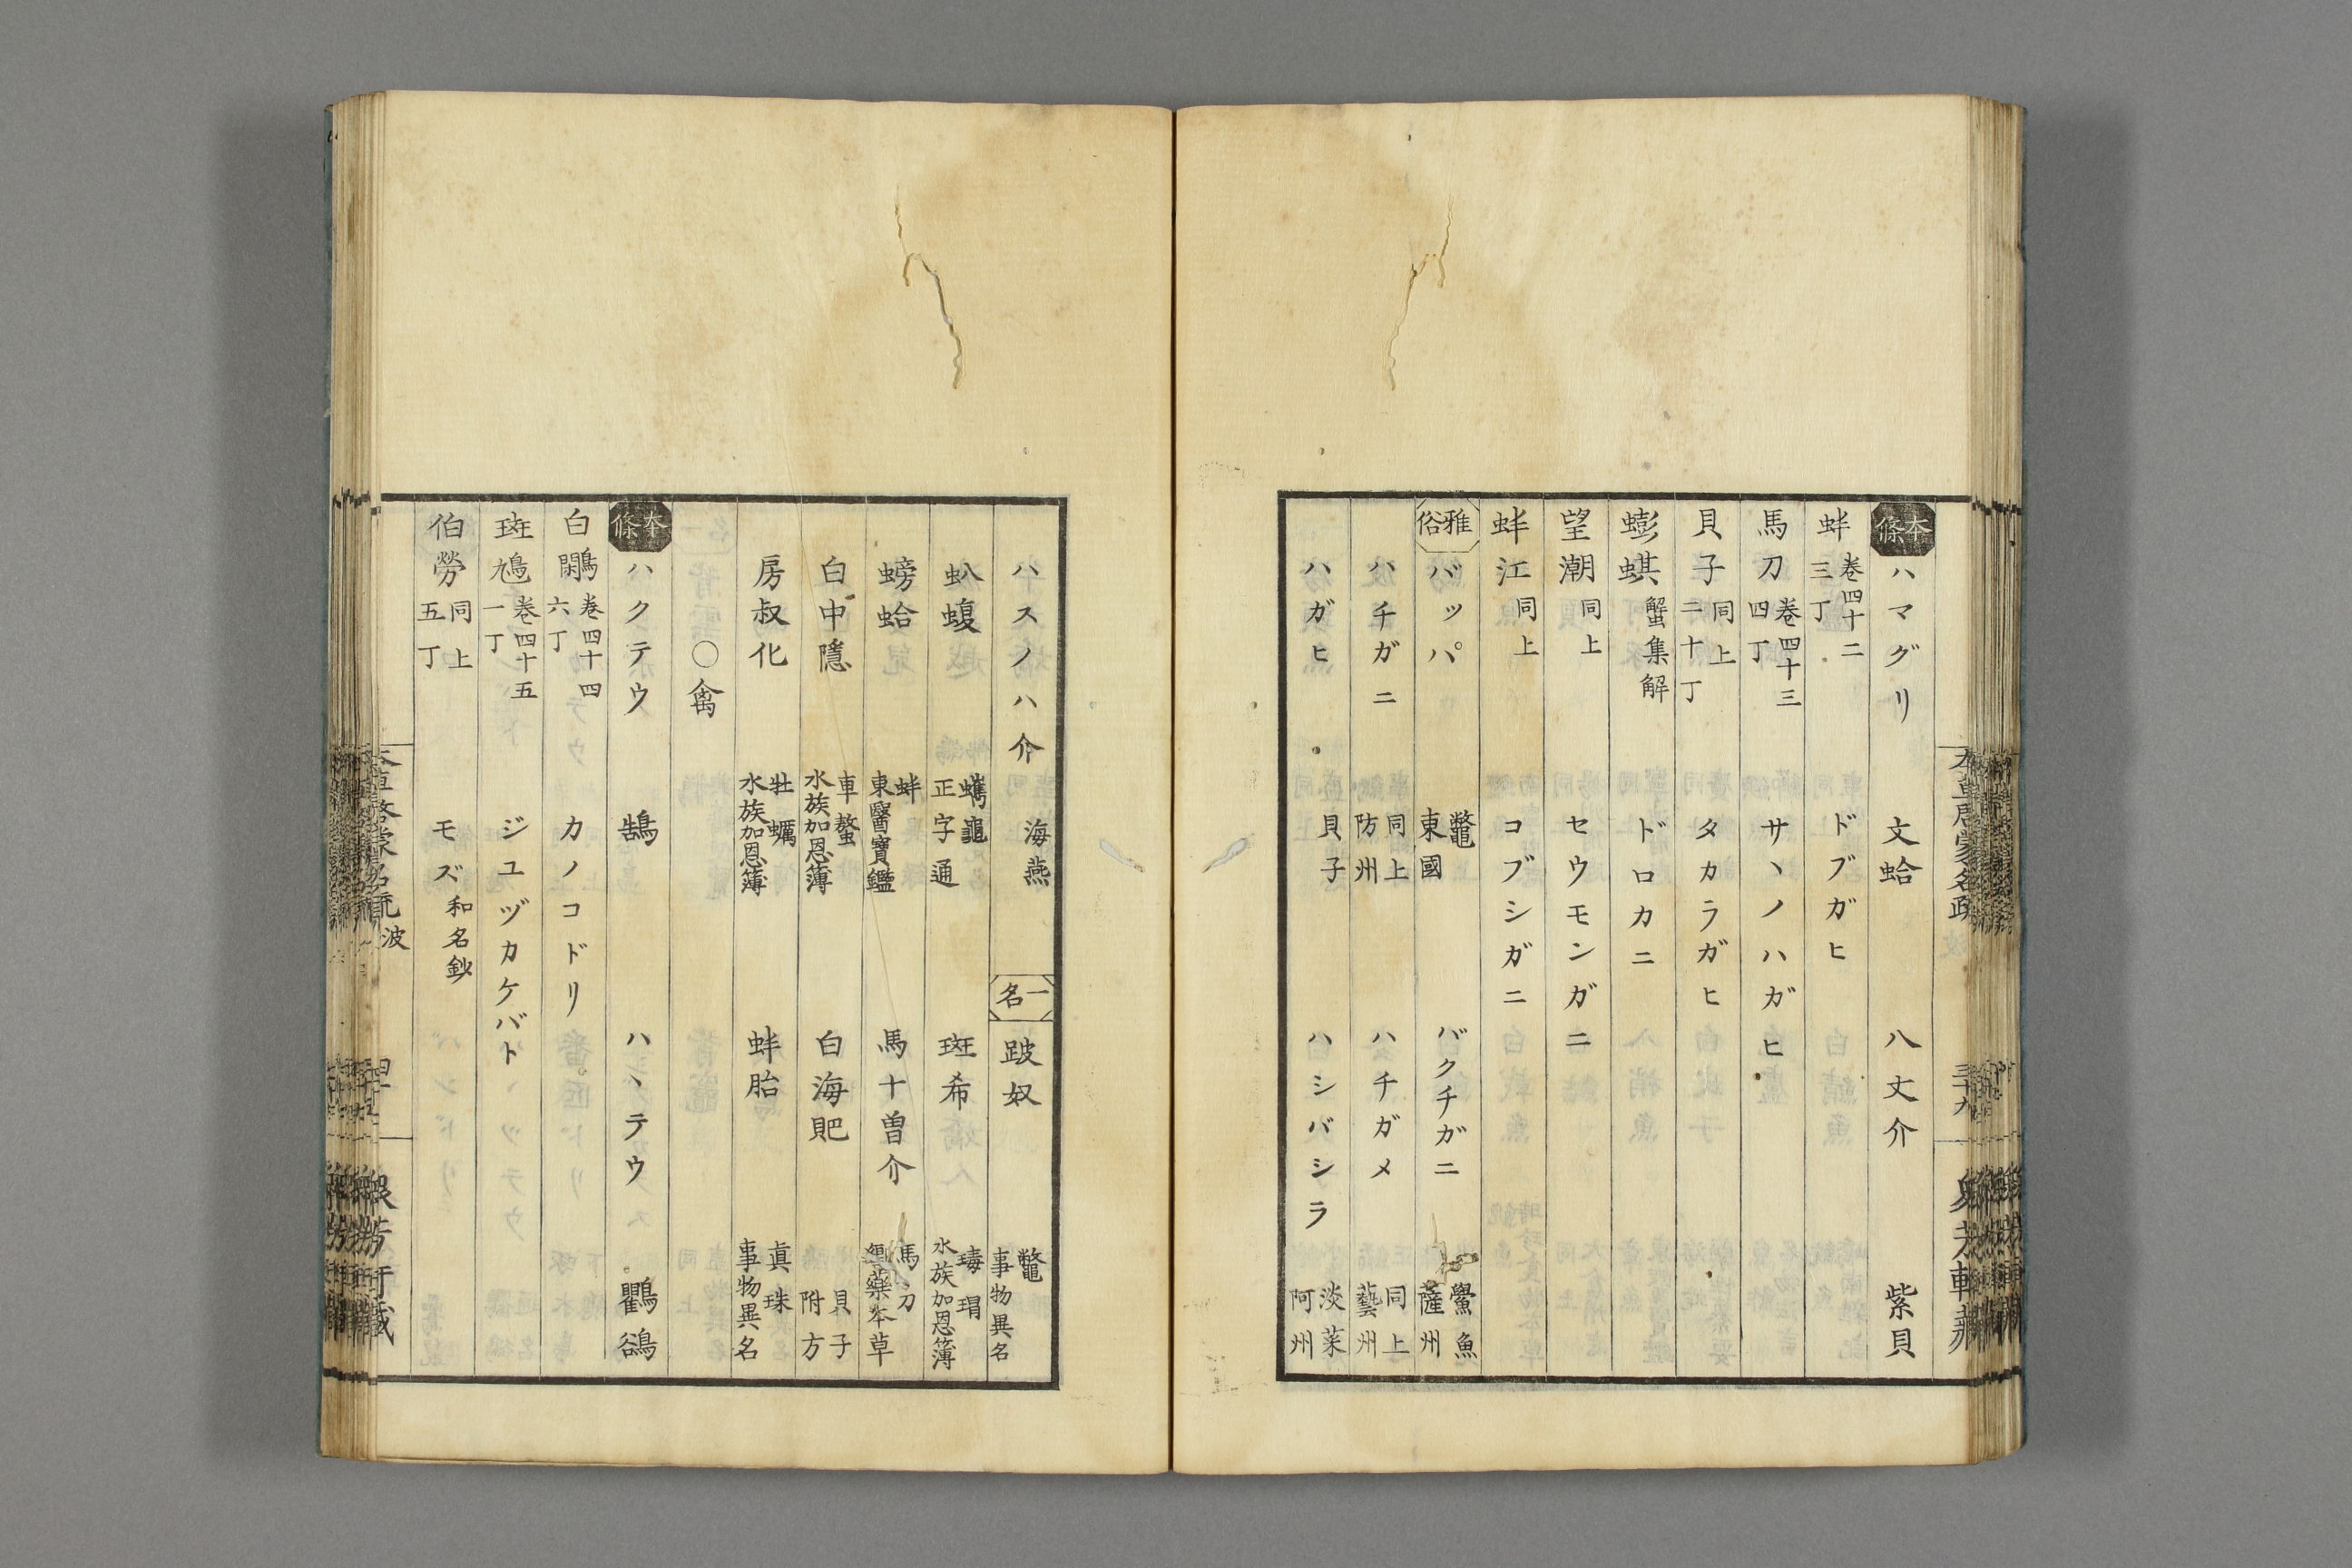 本條 ハマグリ 文蛤 八丈介 紫貝
蚌 卷四十二 三丁 ドブガヒ
馬刀 卷四十三 四丁 サヽノハガヒ
貝子 同上 二十丁 タカラガヒ
蟛蜞 蟹集解 ドロカニ
望潮 同上 セウモンガニ
蚌江 同上 コブシガニ
雅俗 バッパ 鼈 東國 バクチガニ 鱟魚 薩州
ハチガニ 同上 防州 ハチガメ 同上 藝州
ハガヒ 貝子 ハシバシラ 淡菜 阿州
ハスノハ介 海燕 一名 跛奴 鼈 事物異名
𧈢蝮 蠵龜 正字通 斑希 瑇瑁 水族加恩簿
螃蛤 蚌 東醫寶鑑 馬十曽介 馬刀 藥本草
白中隱 車螯 水族加恩簿 白海肥 貝子 附方
房叔化 牡蠣 水族加恩簿 蚌胎 眞珠 事物異名
〇禽
本條 ハクテウ 鵠 ハヽテウ 鸜鵒
白鷴 卷四十四 六丁 カノコドリ
斑鳩 卷四十五 一丁 ジユヅカケバト
伯勞 同上 五丁 モズ 和名鈔
波